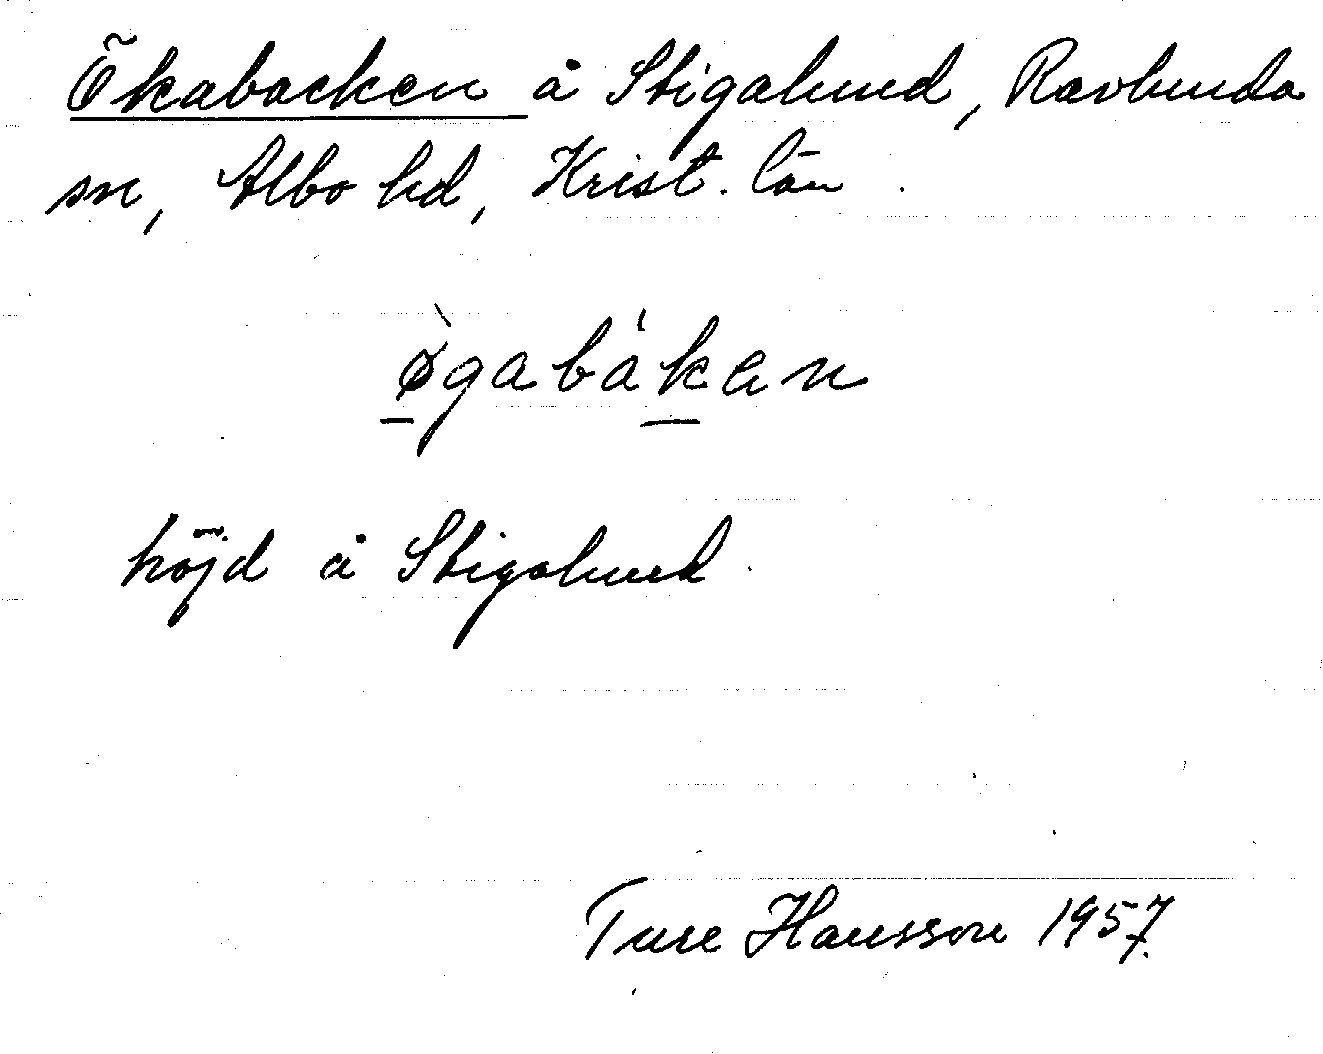 Ökabacken å Stigalund, Ravlunda
sn, Albo hd, Krist. län.
ø̀gabáken
höjd å Stigalund.
Ture Hansson 1957.